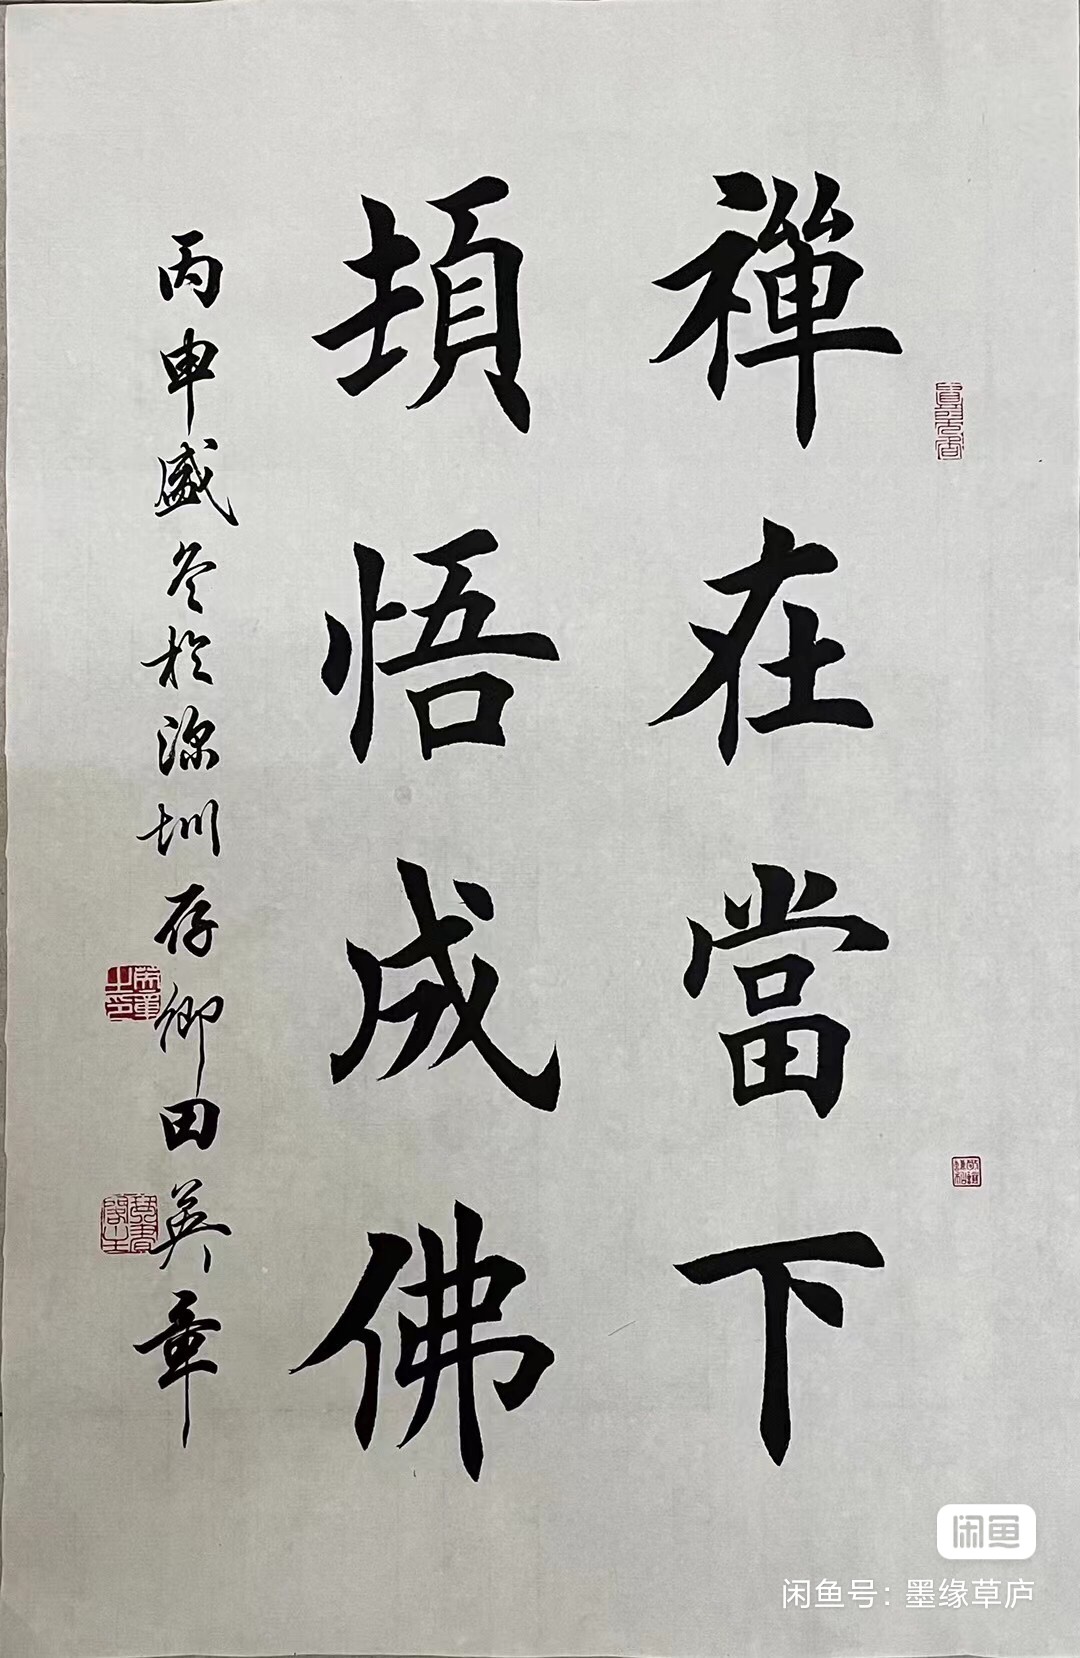 禪在當下
頓悟成佛
丙申盛冬於深圳存卿田英章
闲鱼
闲鱼号：墨缘草庐